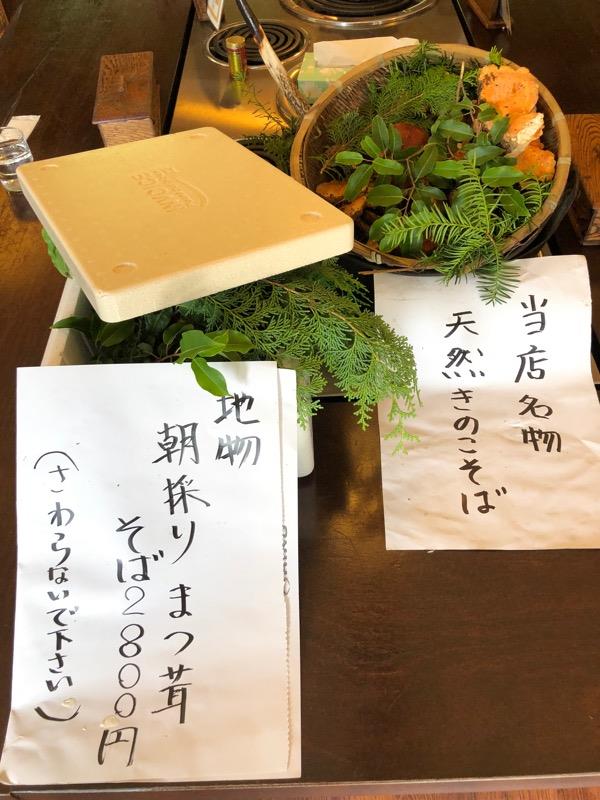 当店名物
天然きのこそば
地物
朝採りまつ茸
そば2800円
(さわらないで下さい)